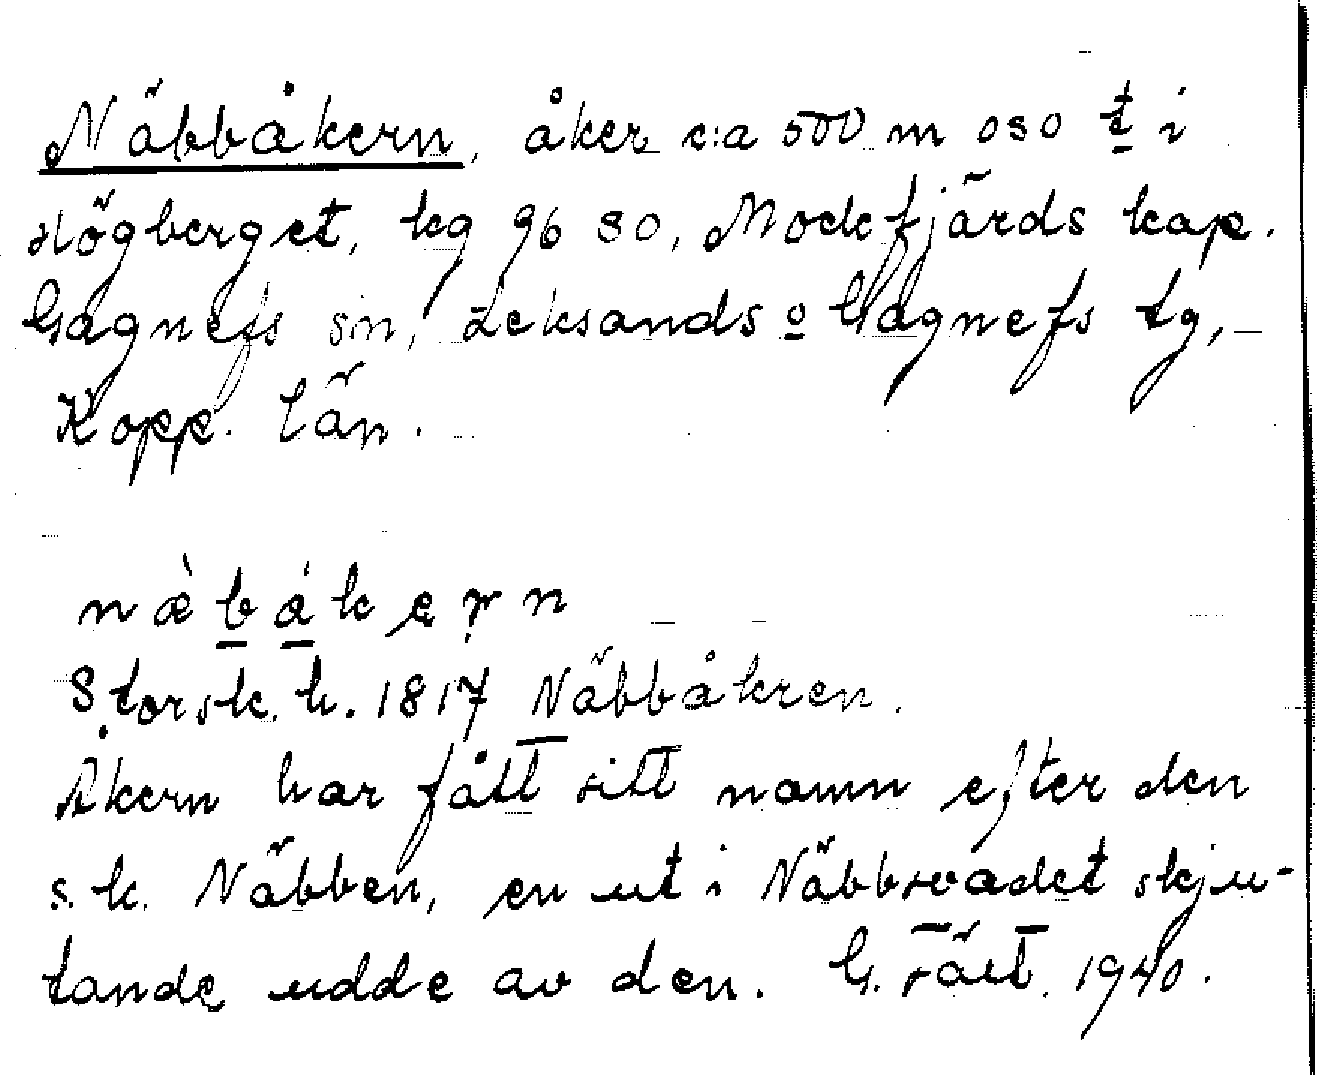 Näbbåkern, åker c:a 500 m oso t i
Högberget, kg 96 SO, Mockfjärds kap.
Gagnefs sn, Leksands o Gagnefs tg,
Kopp. län.
næ̀bákern
Storsk. k. 1817 Näbbåkren.
Åkern har fått sitt namn efter den
s.k. Näbben, en ut i Näbbsvadet skju-
tande udde av den. G. 1940.